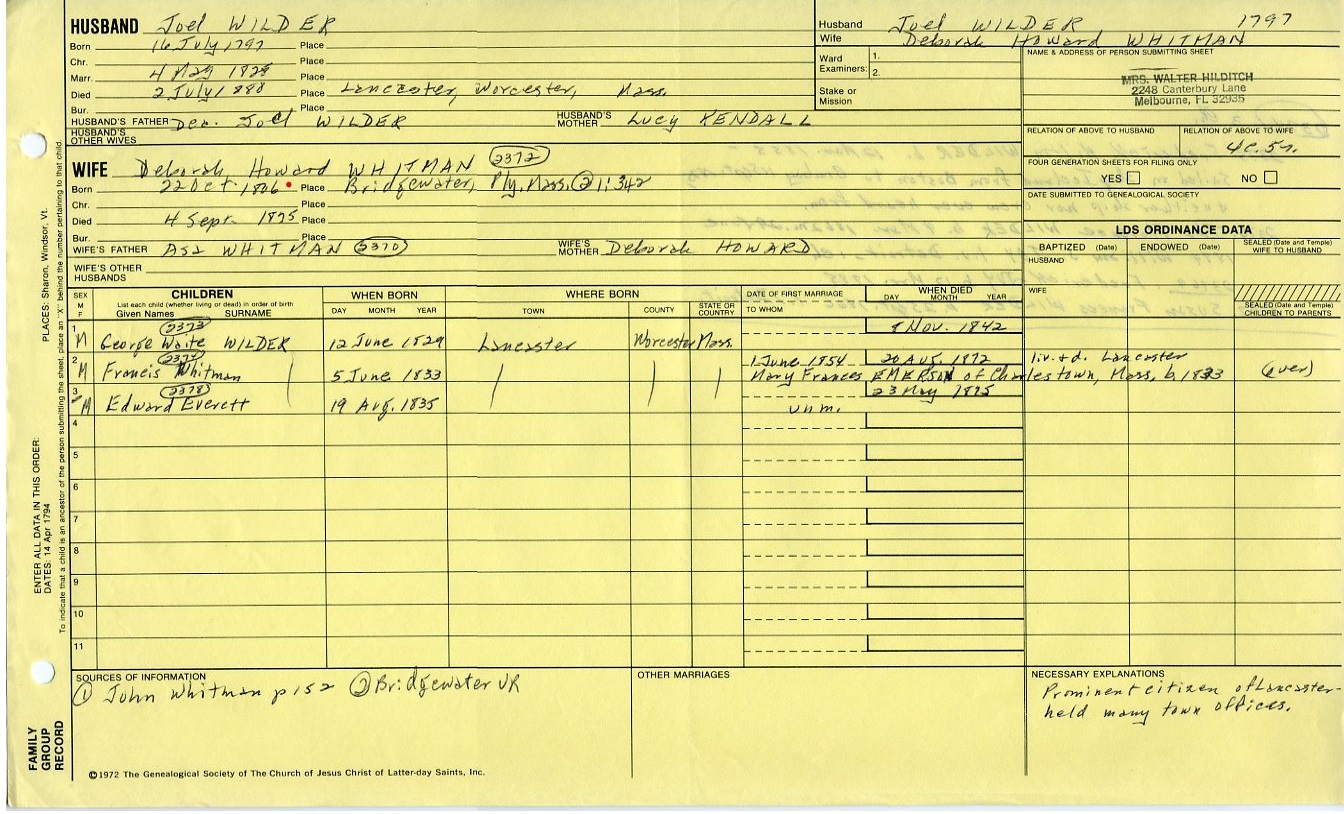 HUSBAND Joel WILDER
Born 16 July 1797 Place
Chr. Place
Marr. 4 May 1828 Place
Died 2 July 1888 Place Lancaster, Worcester, Mass.
Bur. Place
HUSBAND'S FATHER Dec. Joel WILDER HUSBAND'S MOTHER Lucy KENDALL
HUSBAND'S OTHER WIVES
Husband Joel WILDER 1797
Wife Deborah Howard WHITMAN
Ward 1.
Examiners: 2.
Stake or Mission
NAME & ADDRESS OF PERSON SUBMITTING SHEET
MRS. WALTER HILDITCH
2248 Canterbury Lane
Melbourne, FL 32935
RELATION OF ABOVE TO HUSBAND RELATION OF ABOVE TO WIFE
4c.5r.
FOUR GENERATION SHEETS FOR FILING ONLY
YES NO
DATE SUBMITTED TO GENEALOGICAL SOCIETY
WIFE Deborah Howard WHITMAN 2372
Born 22 Oct 1806 Place Bridgewater, Ply, Mass. 2 1:342
Chr. Place
Died 4 Sept. 1875 Place
Bur. Place
WIFE'S FATHER Asa WHITMAN 2370 WIFE'S MOTHER Deborah HOWARD
WIFE'S OTHER HUSBANDS
LDS ORDINANCE DATA
BAPTIZED (Date) ENDOWED (Date) SEALED (Date and Temple) WIFE TO HUSBAND
HUSBAND
WIFE
SEALED (Date and Temple) CHILDREN TO PARENTS
SEX M F CHILDREN WHEN BORN WHERE BORN DATE OF FIRST MARRIAGE WHEN DIED
List each child (whether living or dead) in order of birth
Given Names SURNAME DAY MONTH YEAR TOWN COUNTY STATE OR COUNTRY TO WHOM DAY MONTH YEAR
1 2373 9 Nov. 1842
M George Waite WILDER 12 June 1829 Lancaster Worcester Mass.
2 2374 1 June 1854 20 Aug. 1872 liv. + d. Lancaster
M Francis Whitman 5 June 1833 Mary Frances EMERSON of Charlestown, Mass. b. 1833 (over)
3 2378 23 May 1875
M Edward Everett 19 Aug. 1835 unm.
4
5
6
7
8
9
10
11
SOURCES OF INFORMATION
1 John Whitman p 152 2 Bridgewater VR
OTHER MARRIAGES
NECESSARY EXPLANATIONS
Prominent citizen of Lancaster-
held many town offices.
©1972 The Genealogical Society of The Church of Jesus Christ of Latter-day Saints, Inc.
FAMILY GROUP RECORD
ENTER ALL DATA IN THIS ORDER:
DATES: 14 Apr 1794
PLACES: Sharon, Windsor, Vt.
To indicate that a child is an ancestor of the person submitting the sheet, place an "X" behind the number pertaining to that child.